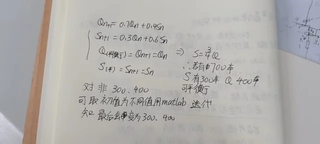 Qn+1 = 0.7Qn + 0.4Sn
Sn+1 = 0.3Qn + 0.6Sn
Qn+1 = Qn ⇒ S = 3/4 Q
Sn+1 = Sn
共有700本
S有300本 Q 400本
可平衡
对非 300. 400
可取 初值为不同值用matlab 迭代
知 最后会变为 300. 400